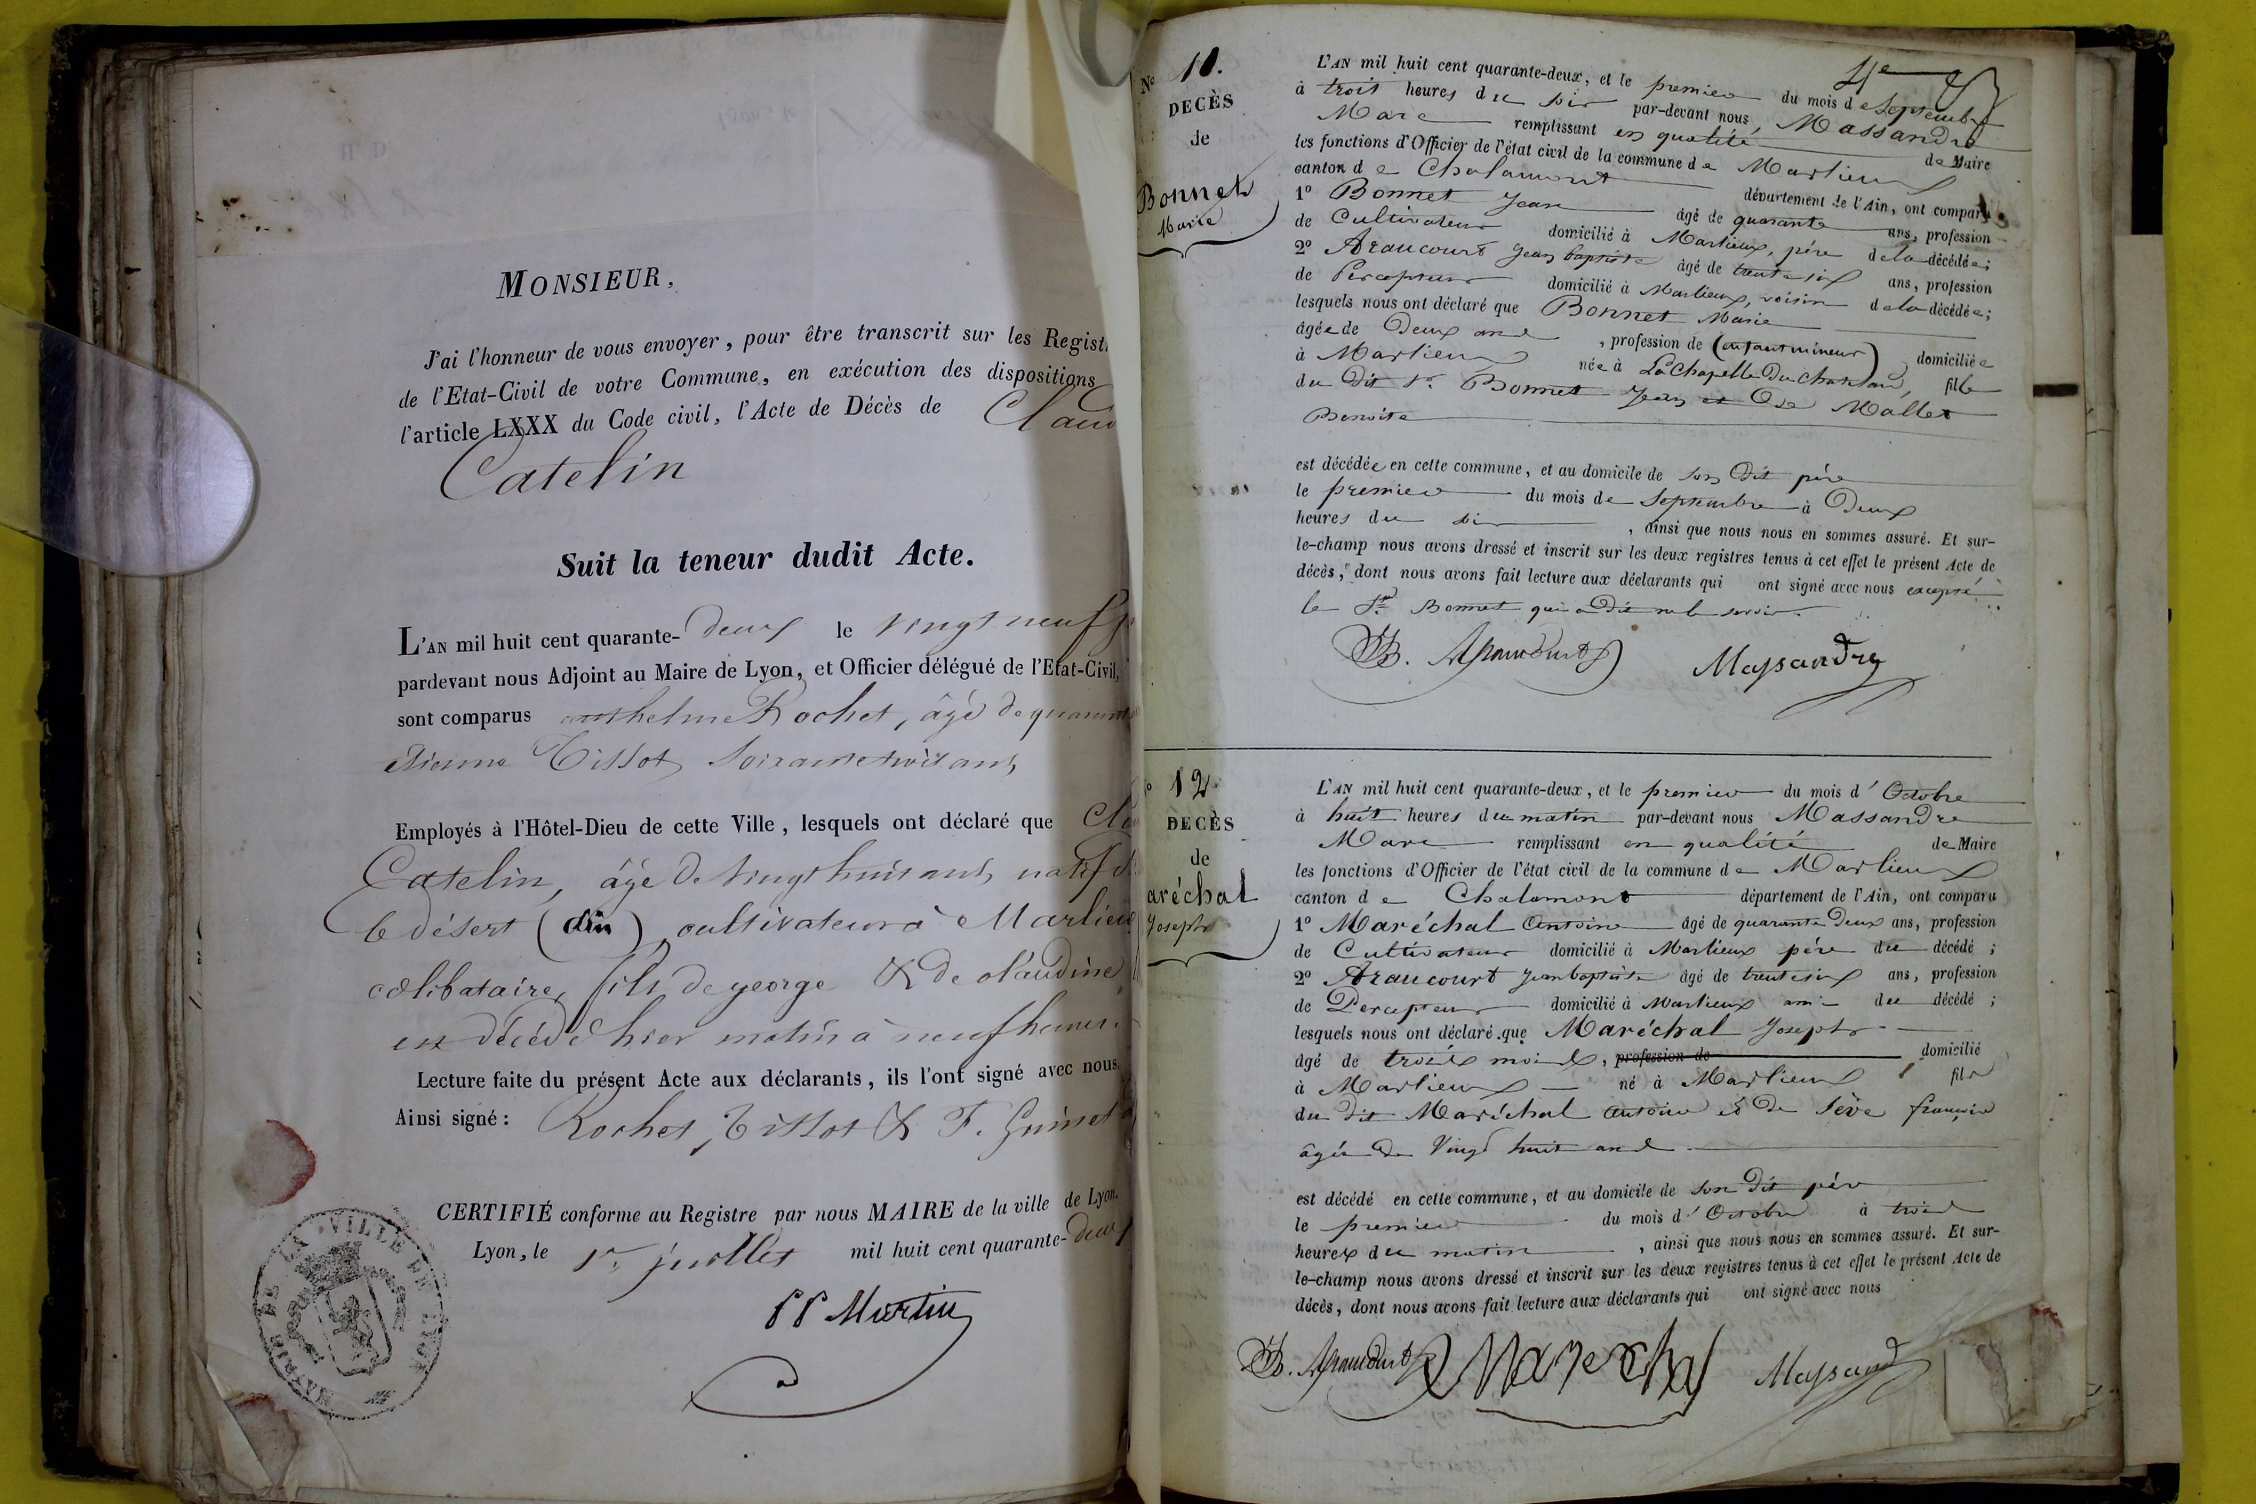 MONSIEUR,
J'ai l'honneur de vous envoyer, pour être transcrit sur les Regist
de l'Etat-Civil de votre Commune, en exécution des dispositions
l'article LXXX du Code civil, l'Acte de Décès de Claud
Catelin
Suit la teneur dudit Acte.
L'AN mil huit cent quarante-deux le vingt neuf
pardevant nous Adjoint au Maire de Lyon, et Officier délégué de l'Etat-Civil,
sont comparus anthelme Rochet, âgé de quarant
etienne Tissot soixante trois ans
Employés à l'Hôtel-Dieu de cette Ville, lesquels ont déclaré que Cla
Catelin, âgé de vingt huit ans, natif d
le désert (ain), cultivateur à Marlieu
célibataire, fils de george & de claudine
est décédé hier matin à neuf heures.
Lecture faite du présent Acte aux déclarants, ils l'ont signé avec nous.
Ainsi signé: Rochet, Tissot & F. Guinet
CERTIFIÉ conforme au Registre par nous MAIRE de la ville de Lyon.
Lyon, le 1er juillet mil huit cent quarante-deux
MAIRIE DE LA VILLE DE LYON
Martin
No 11.
DECÈS
de
Bonnet
Marie
L'AN mil huit cent quarante-deux, et le premier du mois de Septembre
à trois heures du soir par-devant nous, Massandre
Marc remplissant en qualité de Maire
les fonctions d'Officier de l'état civil de la commune de Marlieux
canton de Chalamont département de l'Ain, ont comparu
1o Bonnet Jean âgé de quarante ans, profession
de Cultivateur domicilié à Marlieux, père de la décédée;
2o Araucourt Jean baptiste âgé de trente six ans, profession
de Percepteur domicilié à Marlieux, voisin de la décédée;
lesquels nous ont déclaré que Bonnet Marie
âgée de Deux ans, profession de (enfant mineur) domiciliée
à Marlieux née à La Chapelle Du Chatelard, fille
du dit Sr. Bonnet Jean et De Mallet
Benoite
est décédée en cette commune, et au domicile de son dit père
le premier du mois de Septembre à Deux
heures du soir, ainsi que nous nous en sommes assuré. Et sur-
le-champ nous avons dressé et inscrit sur les deux registres tenus à cet effet le présent Acte de
décès, dont nous avons fait lecture aux déclarants qui ont signé avec nous excepté
le Sr. Bonnet qui a dit ne le savoir.
JB. Araucourt Massandre
No 12
DECÈS
de
aréchal
Joseph
L'AN mil huit cent quarante-deux, et le premier du mois d'Octobre
à huit heures du matin par-devant nous Massandre
Marc remplissant en qualité de Maire
les fonctions d'Officier de l'état civil de la commune de Marlieux
canton de Chalamont département de l'Ain, ont comparu
1o Maréchal Antoine âgé de quarante Deux ans, profession
de Cultivateur domicilié à Marlieux père du décédé;
2o Araucourt Jean baptiste âgé de trente six ans, profession
de Percepteur domicilié à Marlieux ami du décédé;
lesquels nous ont déclaré que Maréchal Joseph
âgé de trois mois, profession de domicilié
à Marlieux né à Marlieux fils
du dit Maréchal Antoine et De Sève
âgée de Vingt huit ans
est décédé en cette commune, et au domicile de son dit père
le premier du mois d'Octobre à trois
heures du matin, ainsi que nous nous en sommes assuré. Et sur-
le-champ nous avons dressé et inscrit sur les deux registres tenus à cet effet le présent Acte de
décès, dont nous avons fait lecture aux déclarants qui ont signé avec nous
JB. Araucourt Marechal Massand